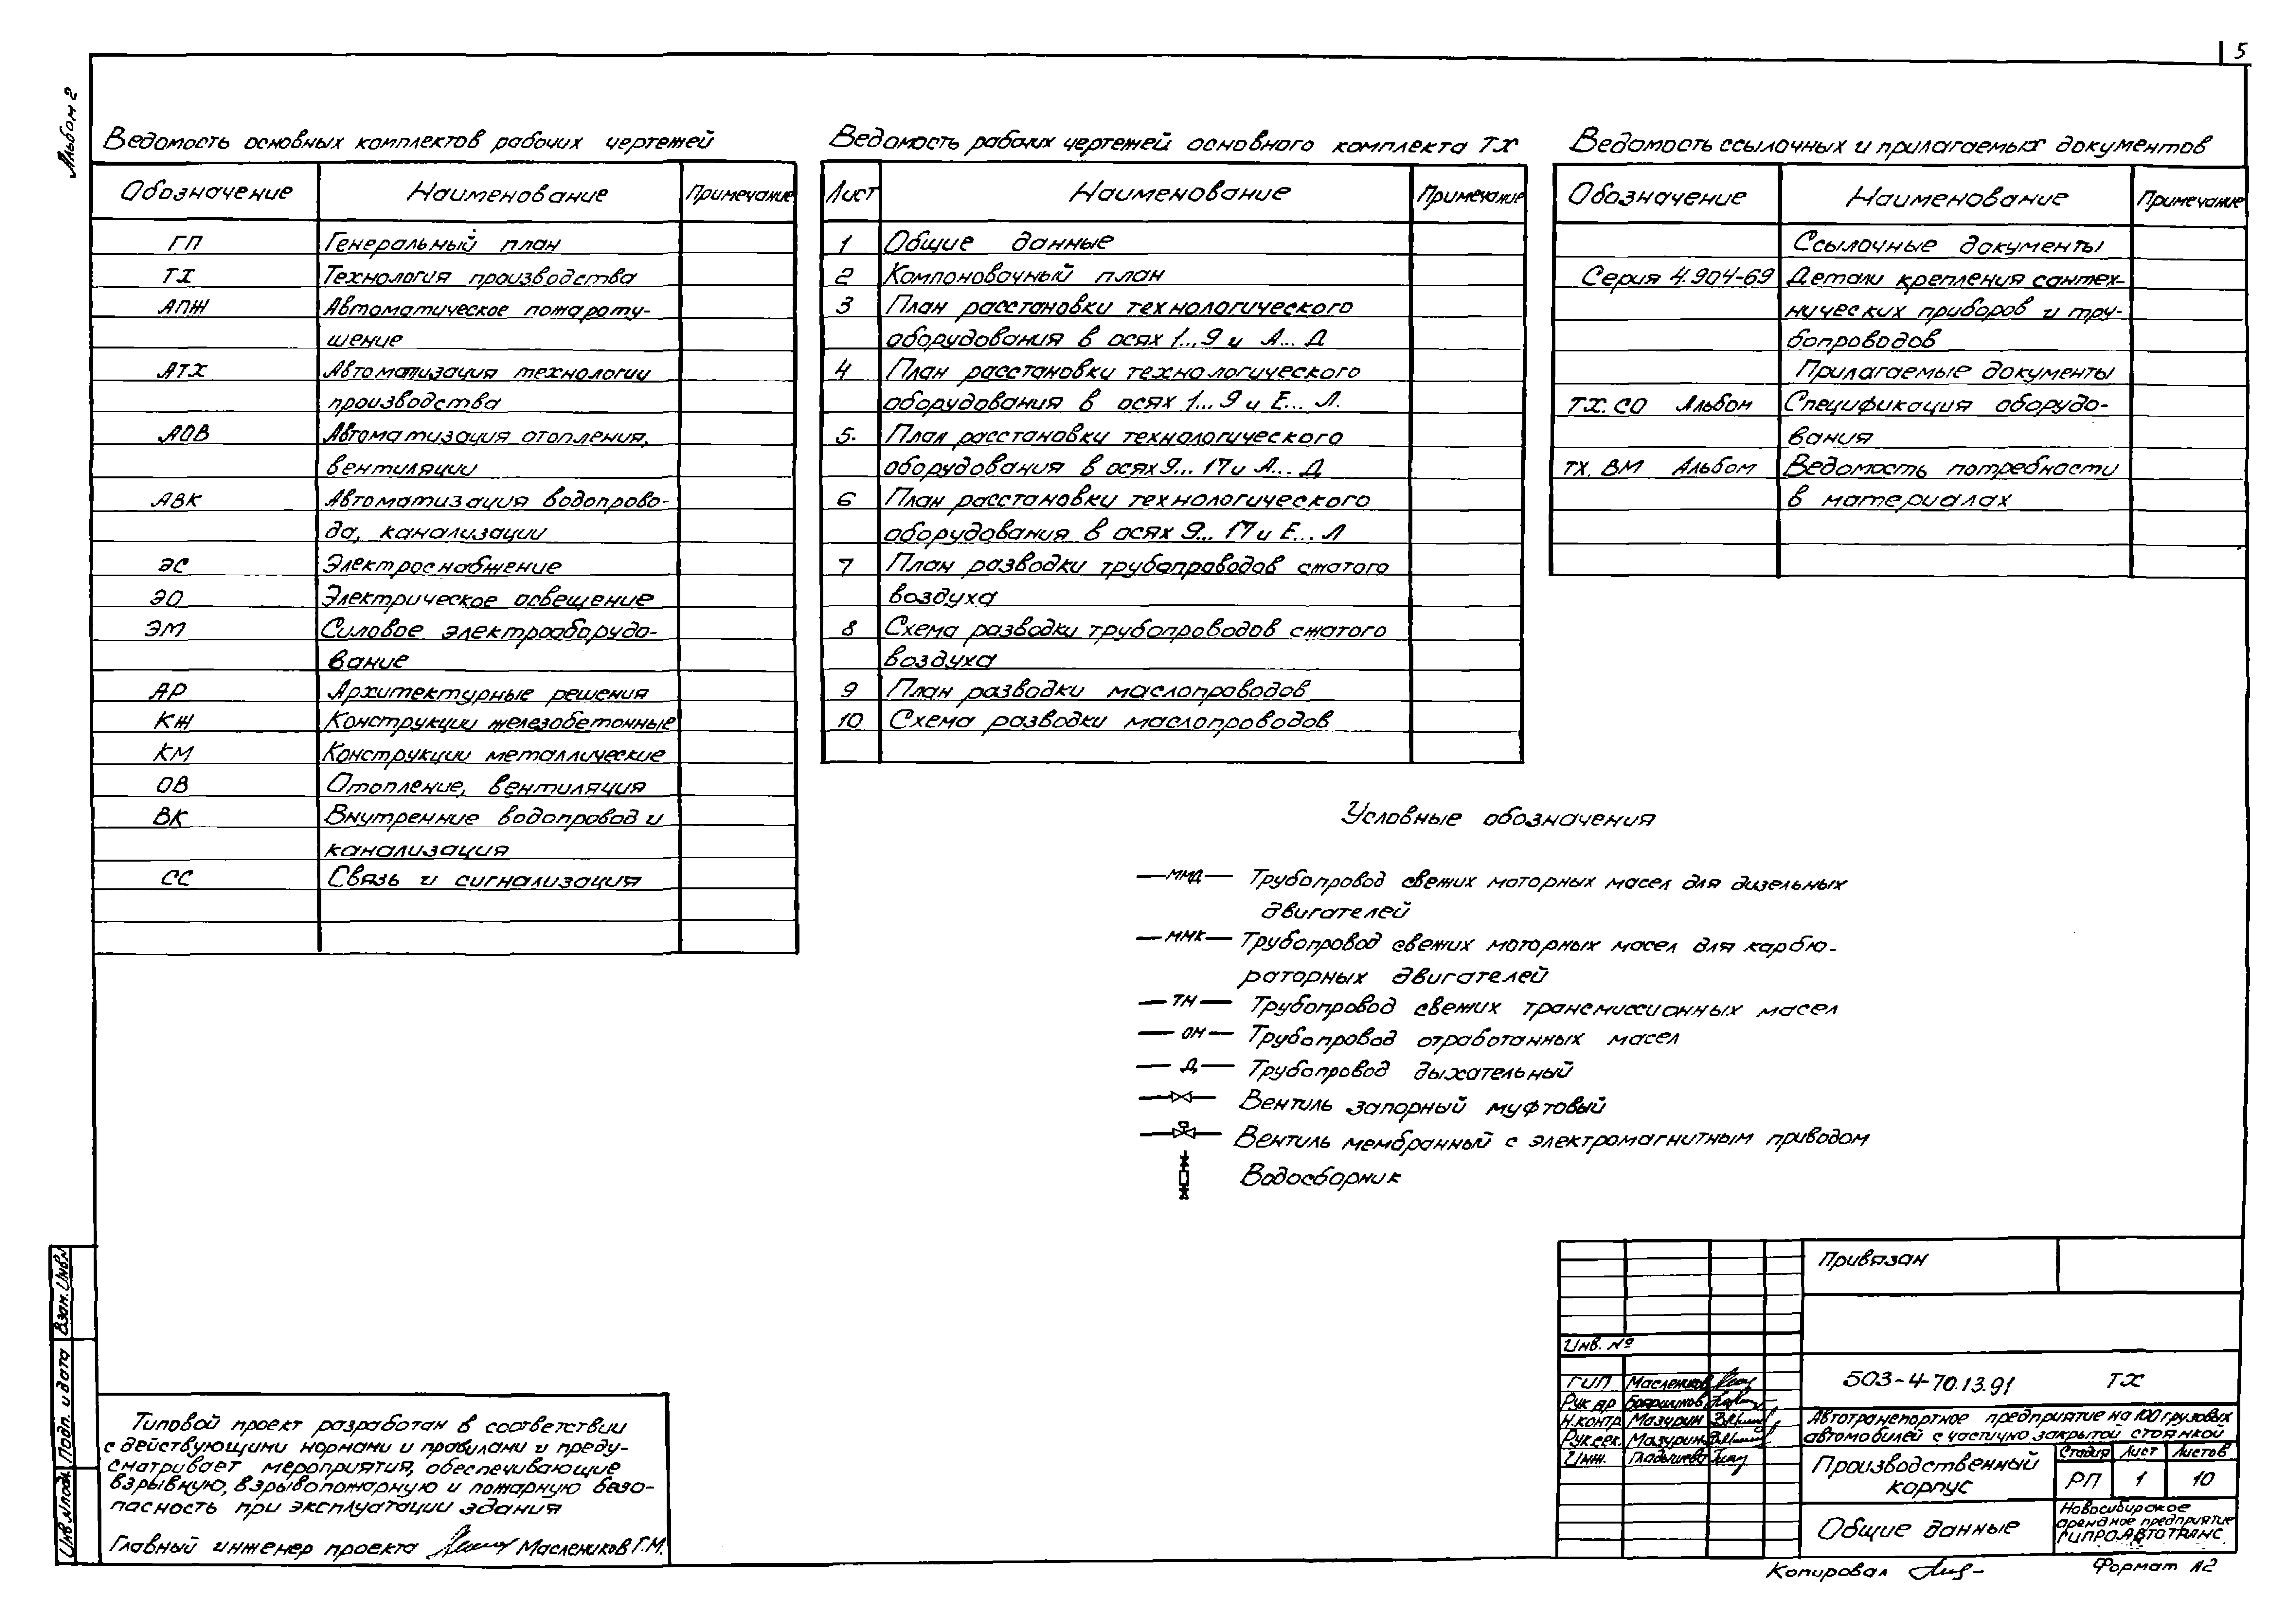 5
Альбом 2
Ведомость основных комплектов рабочих чертежей
Обозначение Наименование Примечание
ГП Генеральный план
ТХ Технология производства
АПЖ Автоматическое пожароту-
шение
АТХ Автоматизация технологии
производства
АОВ Автоматизация отопления,
вентиляции
АВК Автоматизация водопрово-
да, канализации
ЭС Электроснабжение
ЭО Электрическое освещение
ЭМ Силовое электрооборудо-
вание
АР Архитектурные решения
КЖ Конструкции железобетонные
КМ Конструкции металлические
ОВ Отопление, вентиляция
ВК Внутренние водопровод и
канализация
СС Связь и сигнализация
Ведомость рабочих чертежей основного комплекта ТХ
Лист Наименование Примечание
1 Общие данные
2 Компоновочный план
3 План расстановки технологического
оборудования в осях 1...9 и А...Д
4 План расстановки технологического
оборудования в осях 1...9 и Е...Л.
5. План расстановки технологического
оборудования в осях 9...17 и А...Д
6 План расстановки технологического
оборудования в осях 9...17 и Е...Л
7 План разводки трубопроводов сжатого
воздуха
8 Схема разводки трубопроводов сжатого
воздуха
9 План разводки маслопроводов
10 Схема разводки маслопроводов
Ведомость ссылочных и прилагаемых документов
Обозначение Наименование Примечание
Ссылочные документы
Серия 4.904-69 Детали крепления сантех-
нических приборов и тру-
бопроводов
Прилагаемые документы
ТХ.СО Альбом Спецификация оборудо-
вания
ТХ.ВМ Альбом Ведомость потребности
в материалах
Условные обозначения
ММД Трубопровод свежих моторных масел для дизельных
двигателей
ММК Трубопровод свежих моторных масел для карбю-
раторных двигателей
ТМ Трубопровод свежих трансмиссионных масел
ОМ Трубопровод отработанных масел
Д Трубопровод дыхательный
Вентиль запорный муфтовый
Вентиль мембранный с электромагнитным приводом
Водосборник
Взам. Инв.№
Подп. и дата
Инв.№ подл.
Типовой проект разработан в соответствии
с действующими нормами и правилами и преду-
сматривает мероприятия, обеспечивающие
взрывную, взрывопожарную и пожарную безо-
пасность при эксплуатации здания
Главный инженер проекта Маслеников Г.М.
Привязан
Инв. №
ГИП Маслеников
Рук бр Бояршинов
Н.контр. Мазурин
Рук.сек. Мазурин
Инж. Гладышева
503-4-70.13.91 ТХ
Автотранспортное предприятие на 100 грузовых
автомобилей с частично закрытой стоянкой
Производственный
корпус
Стадия Лист Листов
РП 1 10
Общие данные
Новосибирское
арендное предприятие
ГИПРОАВТОТРАНС
Копировал
Формат А2